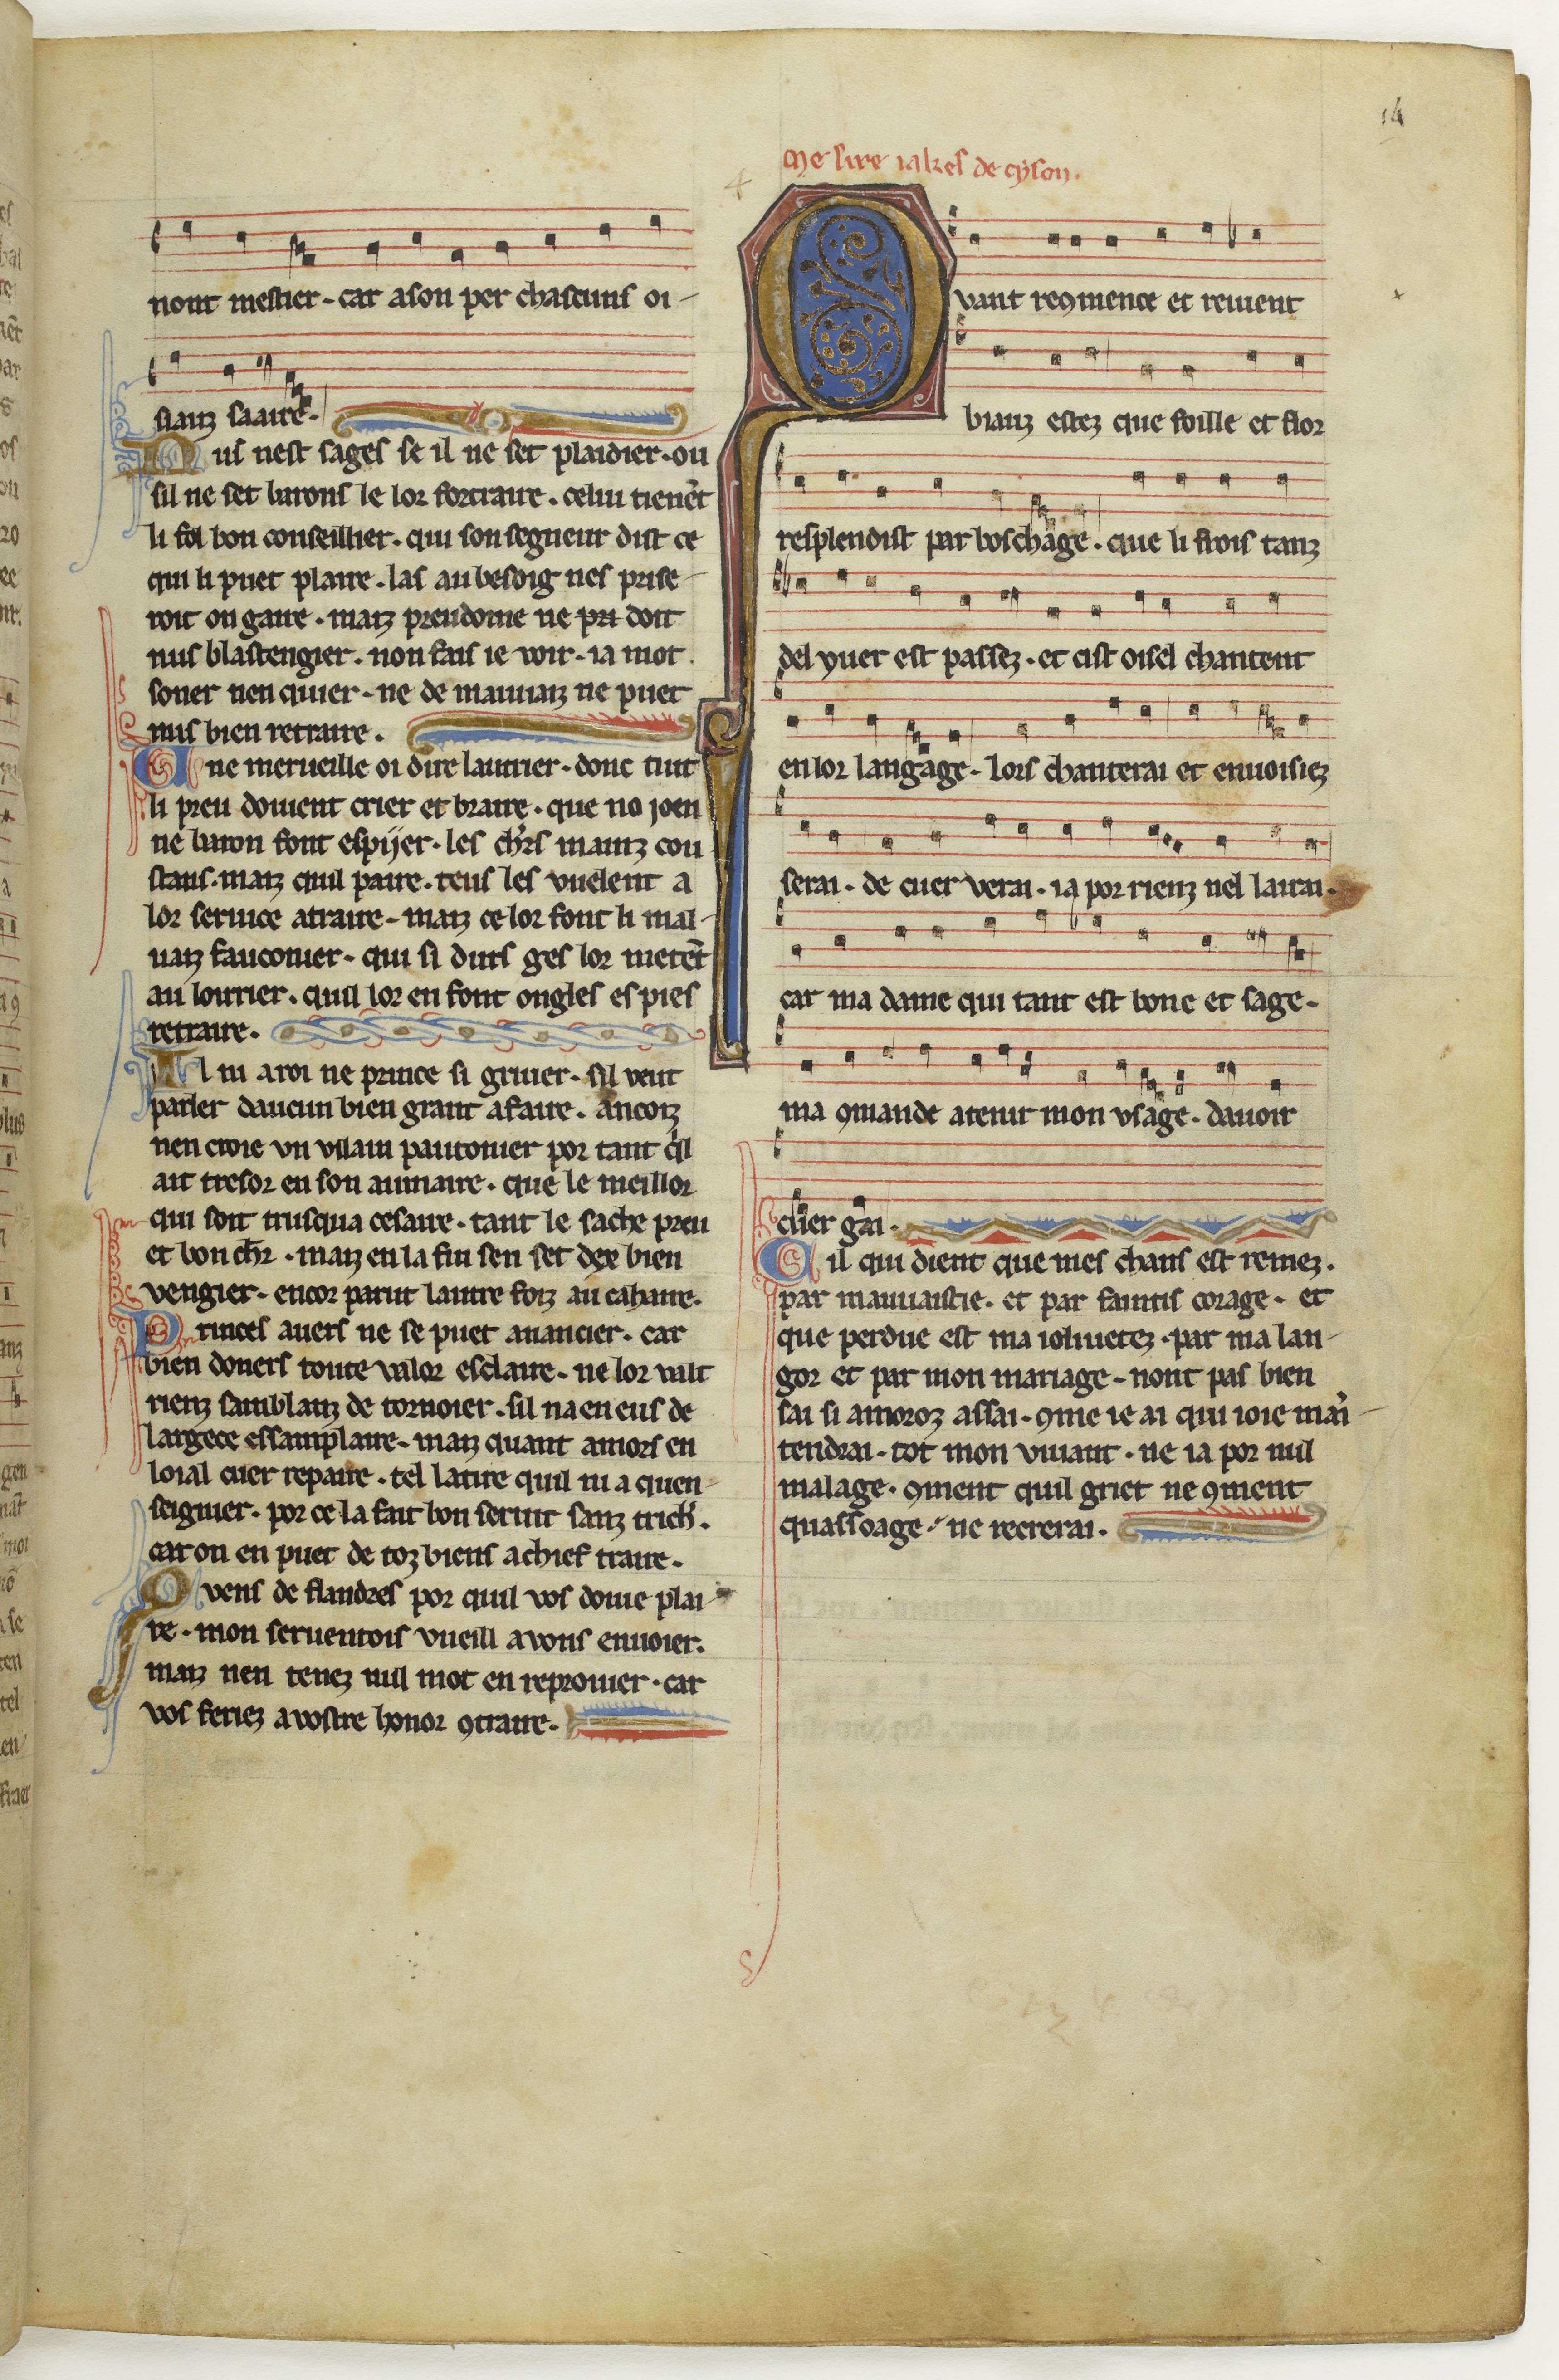 14
me sire iakes de cyson.
nont mestier. car ason per chascuns oi-
sianz saaire.
Nus nest sages se il ne set plaidier. ou
sil ne set barons le lor fortraire. celui tienēt
li fol bon conseillier. qui son segneur dist ce
qui li puet plaire. las au besoig nes prise-
roit on gaire. maiz preudome ne pri doit
nus blastengier. non fais ie voir. ia mot.
soner nen quier. ne de mauuaiz ne puet
nus bien retraire.
Une merueille oi dire lautrier. donc tuit
li preu doiuent crier et braire. que no joen
ne baron font espijer. les chr̄s mainz cou
stans. maiz quil paire. teus les vuelent a
lor seruice atraire. maiz ce lor font li mal-
uaiz fauconier. qui si durs ges lor metēt
au loirrier. quil lor en font ongles es pies
retraire.
Il ni a roi ne prince si gruier. sil veut
parler daucun bien grant afaire. ancoiz
nen croie vn vilain pautonier por tant ql
ait tresor en son aumaire. que le meillor
qui soit trusqua cesaire. tant le sache preu
et bon chr̄. maiz en la fin sen set dex bien
vengier. encor parut lautre foiz au cahaire.
Princes auers ne se puet auancier. car
bien doners toute valor esclaire. ne lor vault
rienz samblanz de tornoier. sil na en eus de
largece essamplaire. maiz quant amors en
loial cuer repaire. tel latire quil ni a quen-
seignier. por ce la fait bon seruir sanz trich'.
car on en puet de toz biens a chief traire.
Quens de flandres por quil vos doiue plai-
re. mon seruentois vueill a vous enuoier.
maiz nen tenez nul mot en reprouier. car
vos feriez a vostre honor 9traire.
Quant re9mence et reuient
biauz estez que foille et flor
resplendist par boschage. que li froiz tanz
del yuer est passez. et cist oisel chantent
en lor langage. lors chanterai et enuoisiez
serai. de cuer verai. ia por rienz nel lairai.
car ma dame qui tant est bone et sage.
ma 9mande atenir mon vsage. dauoir
cuer gai.
Cil qui dient que mes chans est remez.
par mauuaistie. et par faintis corage. et
que perdue est ma ioliuetez. par ma lan-
gor et par mon mariage. nont pas bien
sai si amoroz assai. 9me ie ai qui ioie main-
tendrai. tot mon viuant. ne ia por nul
malage. 9ment quil griet ne 9ment
quassoage. ne recrerai.